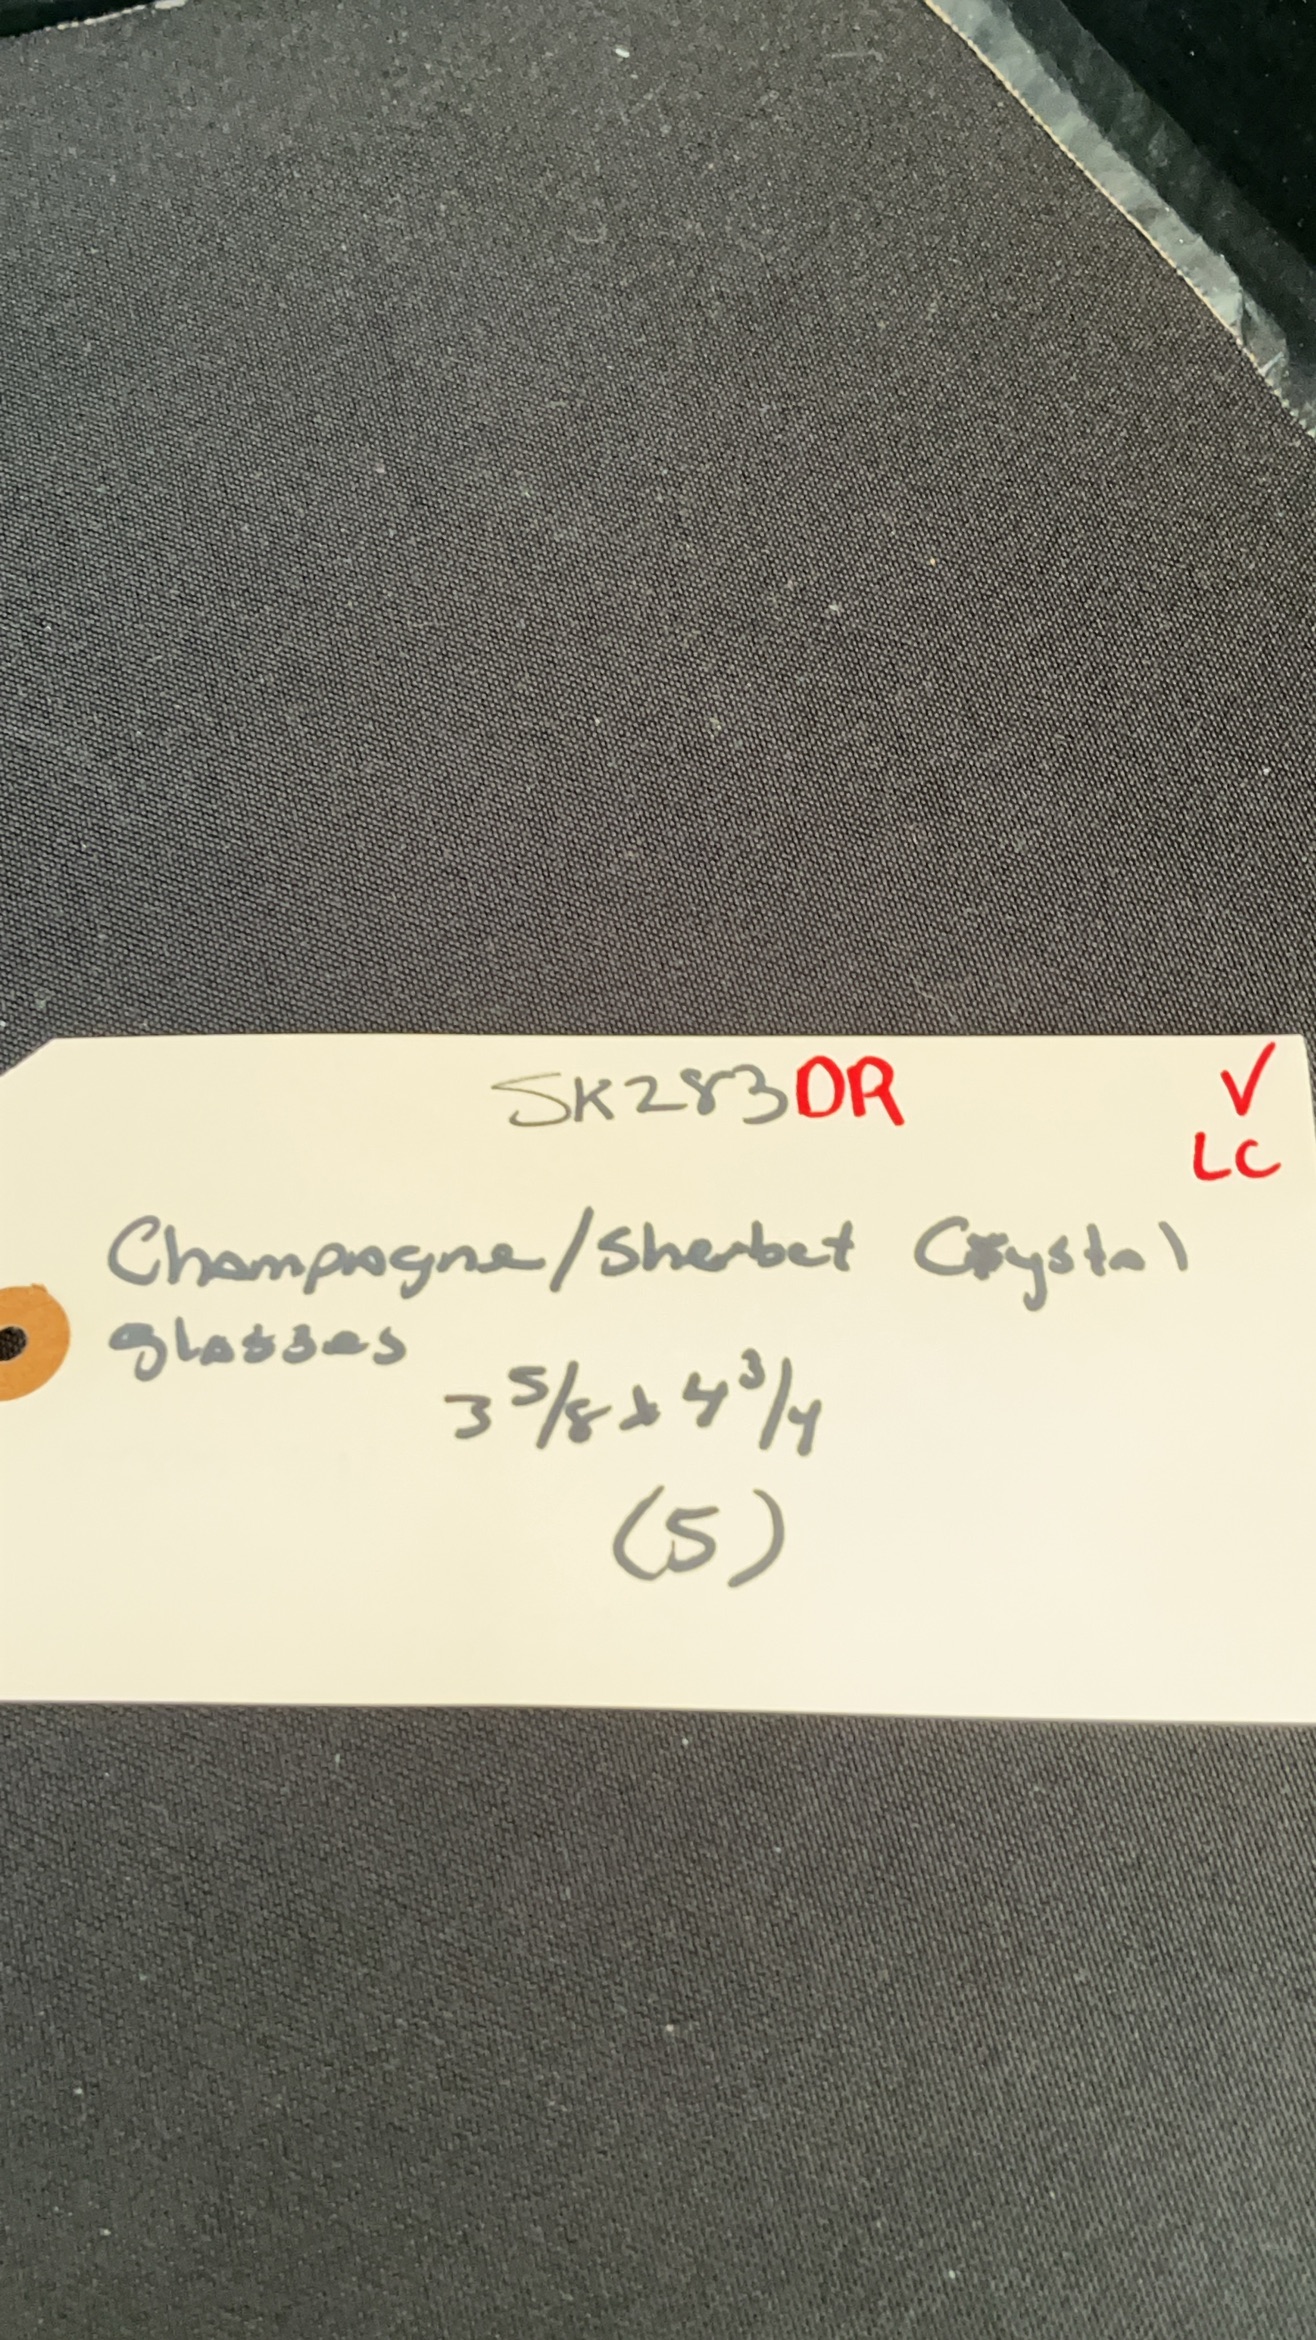 SK283DR ✓
LC
Champagne/Sherbet Crystal
glasses
3 5/8 x 4 3/4
(5)